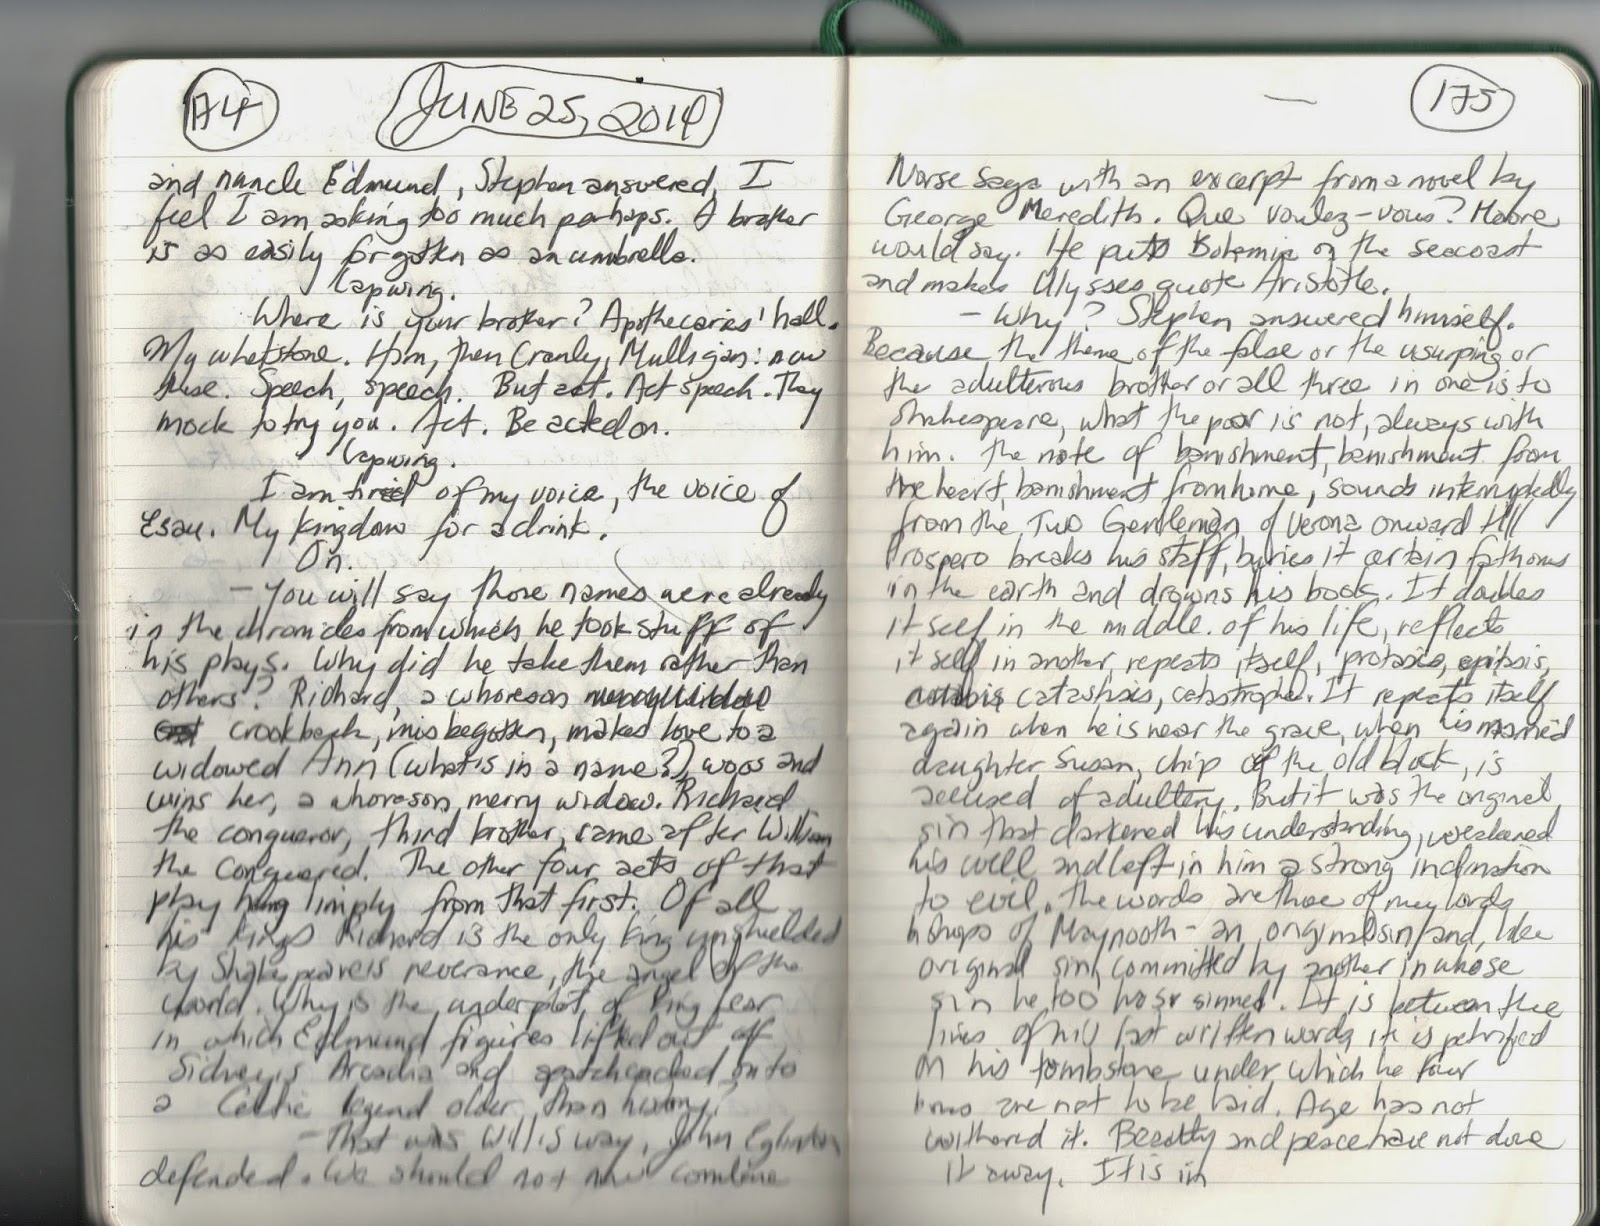 174
JUNE 25, 2014
and nuncle Edmund, Stephen answered, I
feel I am asking too much perhaps. A brother
is as easily forgotten as an umbrella.
Lapwing.
Where is your brother? Apothecaries' hall.
My whetstone. Him, then Cranly, Mulligan: now
these. Speech, speech. But act. Act speech. They
mock to try you. Act. Be acted on.
Lapwing.
I am tired of my voice, the voice of
Esau. My kingdom for a drink.
On.
- You will say those names were already
in the chronicles from which he took stuff of
his plays. Why did he take them rather than
others? Richard, a whoreson
crookback, misbegotten, makes love to a
widowed Ann (what's in a name?), woos and
wins her, a whoreson merry widow. Richard
the conqueror, third brother, came after William
the conquered. The other four acts of that
play hang limply from that first. Of all
his kings Richard is the only king unshielded
by Shakespeare's reverance, the angel of the
world. Why is the underplot of King Lear
in which Edmund figures lifted out of
Sidney's Arcadia and spatchcocked onto
a Celtic legend older than history?
- That was Will's way, John Eglinton
defended. We should not now combine
175
Norse saga with an excerpt from a novel by
George Meredith. Que voulez-vous? Moore
would say. He puts Bohemia on the seacoast
and makes Ulysses quote Aristotle.
- Why? Stephen answered himself.
Because the theme of the false or the usurping or
the adulterous brother or all three in one is to
Shakespeare, what the poor is not, always with
him. The note of banishment, banishment from
the heart, banishment from home, sounds interruptedly
from the Two Gentlemen of Verona onward till
Prospero breaks his staff, buries it certain fathoms
in the earth and drowns his book. It doubles
itself in the middle of his life, reflects
itself in another, repeats itself, protasis, epitasis,
catastasis, catastrophe. It repeats itself
again when he is near the grave, when his married
daughter Susan, chip of the old block, is
accused of adultery. But it was the original
sin that darkened his understanding, weakened
his will and left in him a strong inclination
to evil. The words are those of my lords
bishops of Maynooth - an original sin and, like
original sin, committed by another in whose
sin he too has sinned. It is between the
lines of his last written words, it is petrified
on his tombstone under which her four
bones are not to be laid. Age has not
withered it. Beauty and peace have not done
it away. It is in